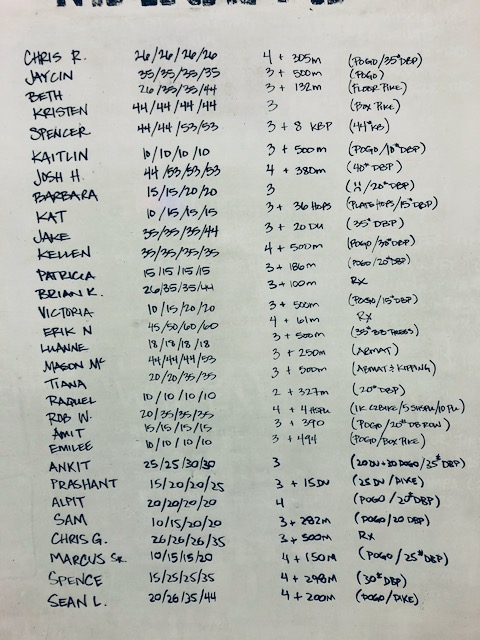 CHRIS R. 26/26/26/26 4 + 305m (POGO/35# DBP)
JAYCIN 35/35/35/35 3 + 500m (POGO)
BETH 26/35/35/44 3 + 132m (FLOOR PIKE)
KRISTEN 44/44/44/44 3 (BOX PIKE)
SPENCER 44/44/53/53 3 + 8 KBP (44# KB)
KAITLIN 10/10/10/10 3 + 500m (POGO/10# DBP)
JOSH H. 44/53/53/53 4 + 380m (40# DBP)
BARBARA 15/15/20/20 3 (/20# DBP)
KAT 10/15/15/15 3 + 36 HOPS (PLATE HOPS/15# DBP)
JAKE 35/35/35/44 3 + 20 DU (35# DBP)
KELLEN 35/35/35/35 4 + 500m (POGO/30# DBP)
PATRICIA 15/15/15/15 3 + 186m (POGO/20# DBP)
BRIAN K. 26/35/35/44 3 + 100m RX
VICTORIA 10/15/20/20 3 + 500m (POGO/15# DBP)
ERIK N 45/50/60/60 4 + 61m RX
LUANNE 18/18/18/18 3 + 500m (35# DB PRESS)
MASON Mc 44/44/44/53 3 + 250m (ABMAT)
TIANA 20/20/35/35 3 + 500m (ABMAT & KIPPING)
RAQUEL 10/10/10/10 2 + 327m (20# DBP)
ROB W. 20/35/35/35 4 + 4 HSPU (1K C2BIKE/5 SHSPU/10 PU)
AMIT 15/15/15/15 3 + 390 (POGO/20# DB ROW)
EMILEE 10/10/10/10 3 + 494 (POGO/BOX PIKE)
ANKIT 25/25/30/30 3 (20 DU + 30 POGO/35# DBP)
PRASHANT 15/20/20/25 3 + 15 DU (25 DU/PIKE)
ALPIT 20/20/20/20 4 (POGO/20# DBP)
SAM 10/15/20/20 3 + 282m (POGO/20 DBP)
CHRIS G. 26/26/26/35 3 + 500m RX
MARCUS SR. 10/15/15/20 4 + 150m (POGO/25# DBP)
SPENCE 15/25/25/35 4 + 298m (30# DBP)
SEAN L. 20/26/35/44 4 + 200m (POGO/PIKE)